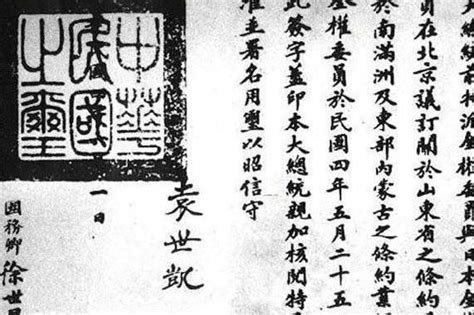 大總統前特派全權委員與日本全
員在北京議訂關於山東省之條約
於南滿洲及東部內蒙古之條約業
全權委員於民國四年五月二十五
此簽字蓋印本大總統親加核閱特
准並署名用璽以昭信守
袁世凱
中華
民國
之璽
一日
國務卿徐世